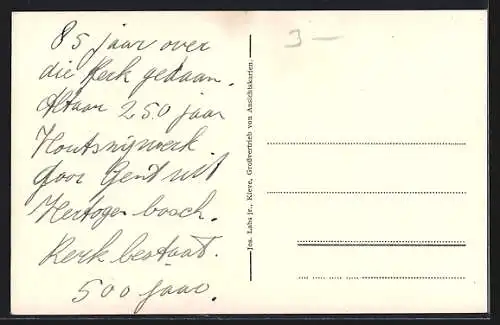 85 jaar over
die Kerk gedaan.
Altaar 250 jaar
Houtsnijwerk
door Gent uit
Hertogen bosch.
Kerk bestaat.
500 jaar.
Jos. Labs jr., Kleve, Großvertrieb von Ansichtskarten.
3 —